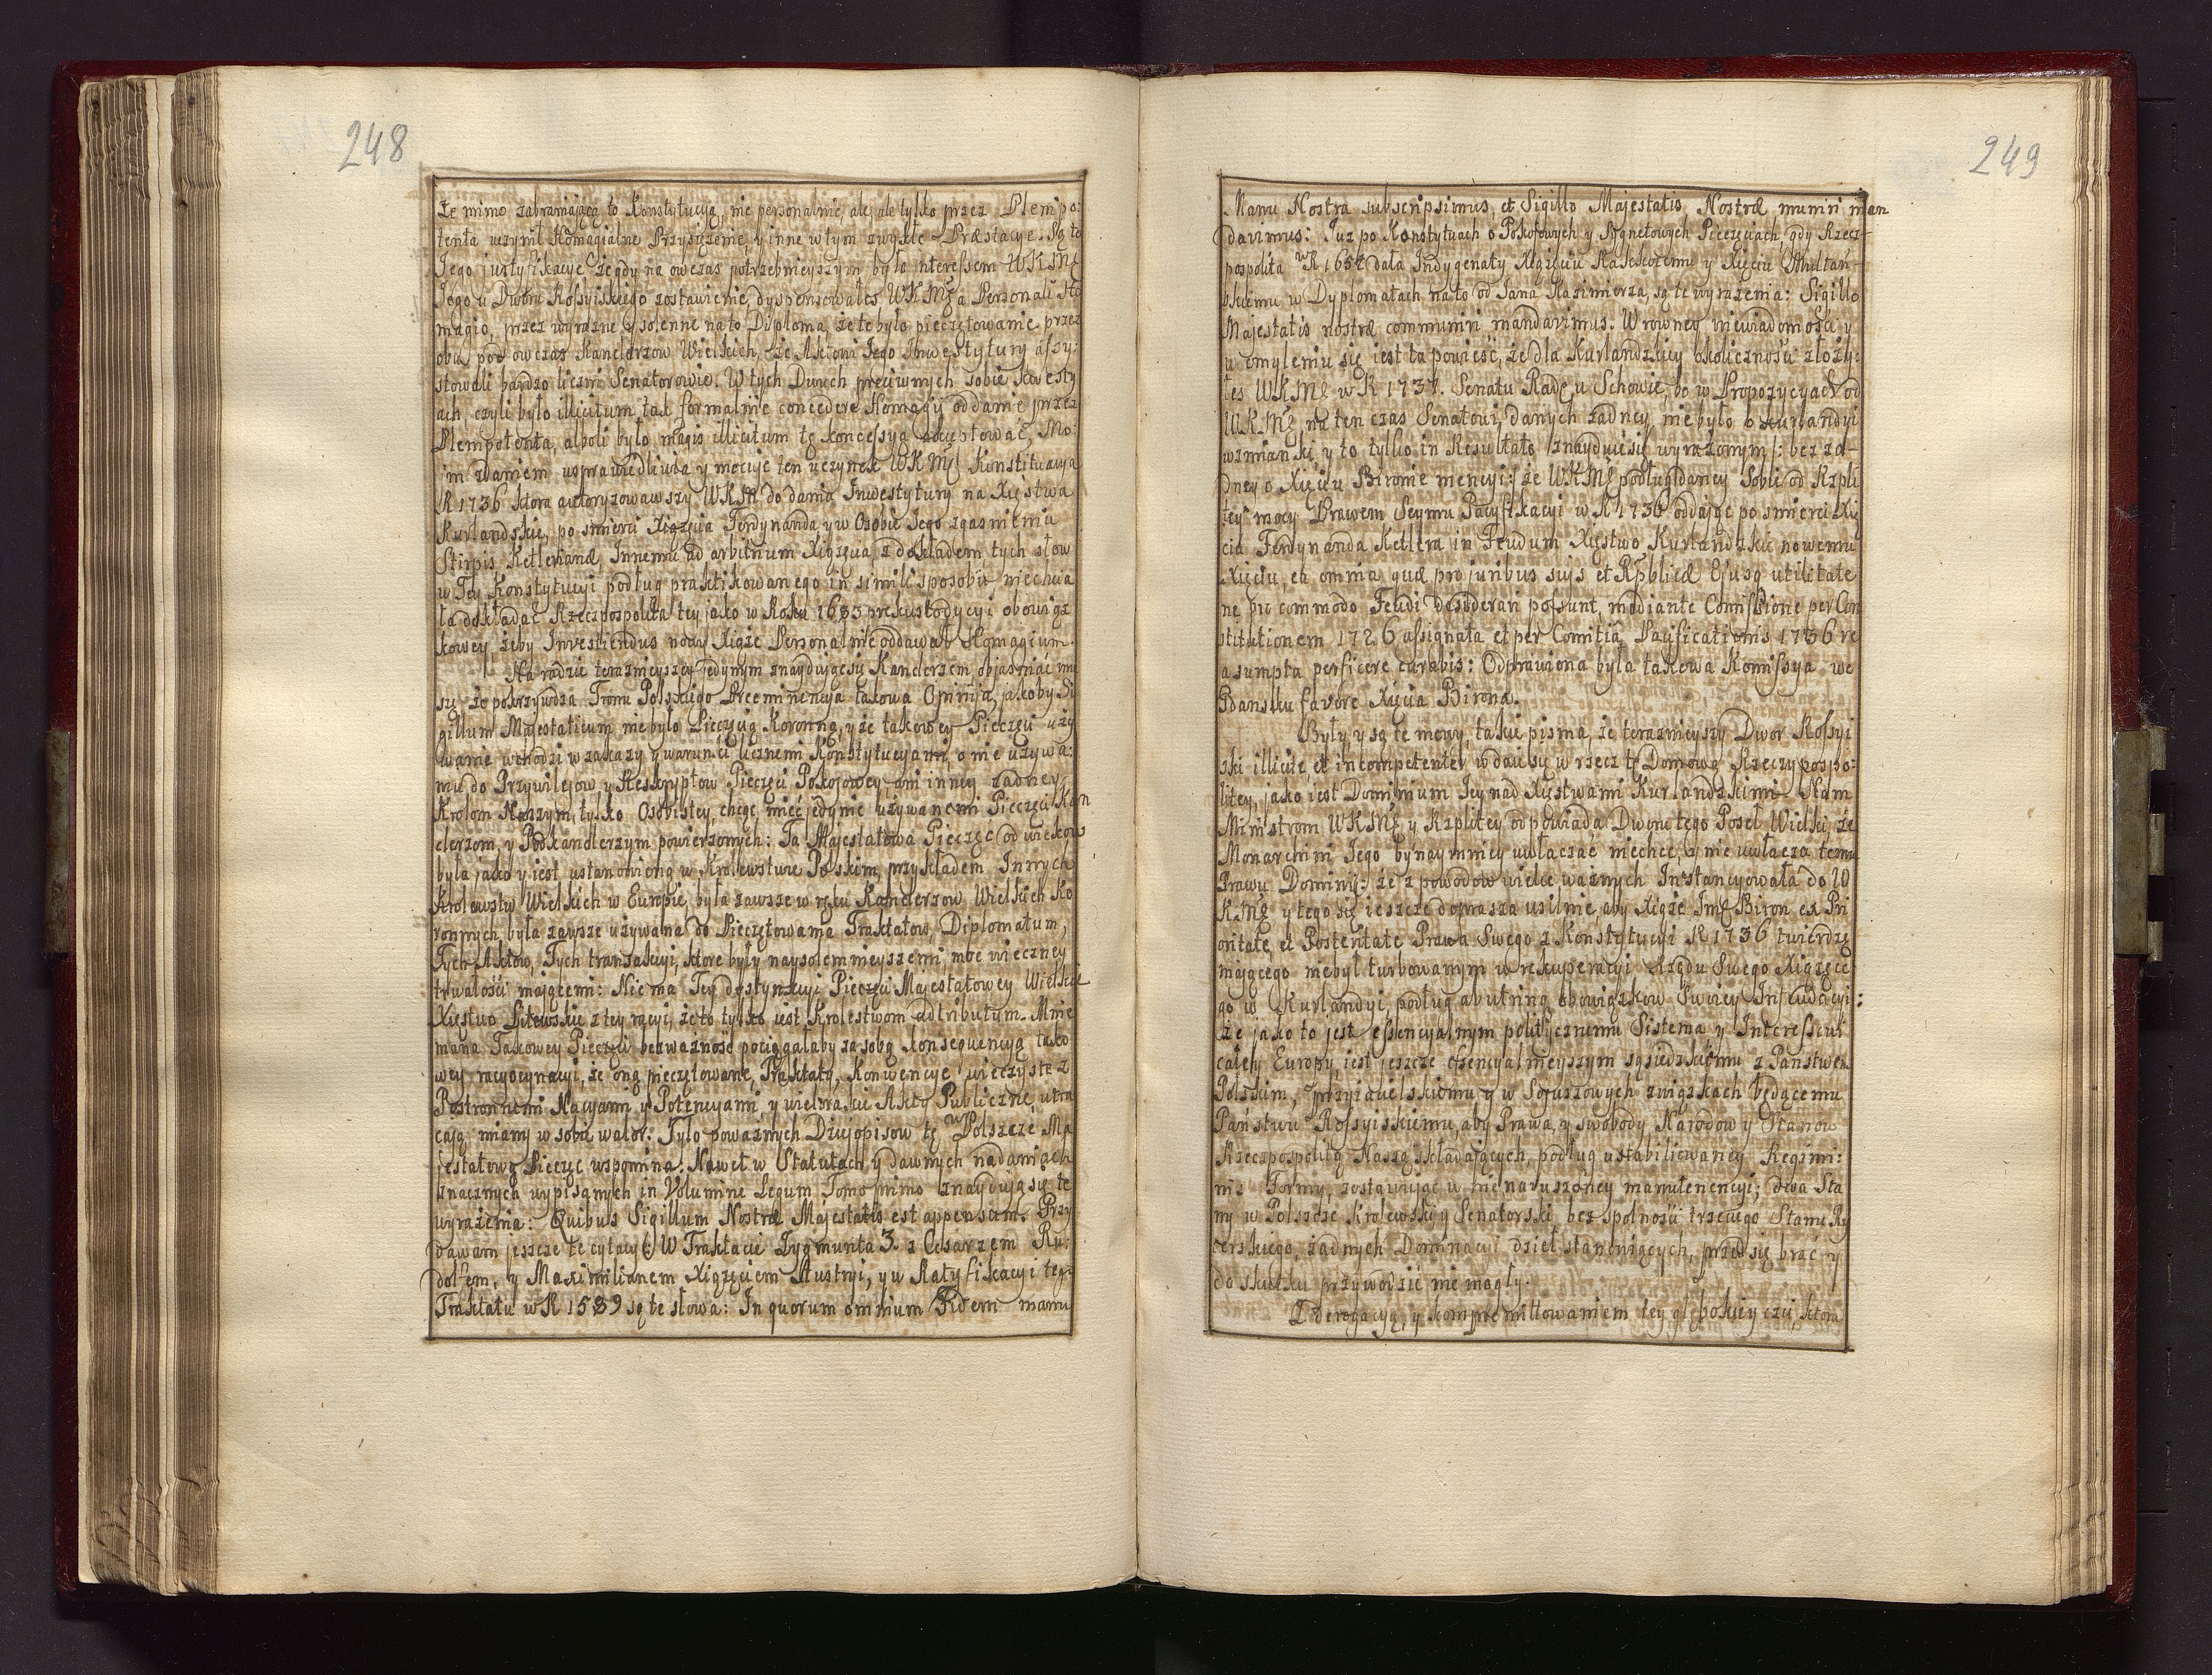 248
że mimo zabraniaiącą to Konstytucyą, nie personalnie, ale ale tylko przez Plenipo:
tenta uczynił Homagialne Przysiężenie, y inne w tym zwykłe Præstacye. Są to
Jego justyfikacye że gdy na owczas potrzebnieyszym było interessem WKMę
Jego u Dworu Rossyiskiego zostawienie, dyspensowałeś WKMę a Personali Ho
magio, przez wyrazne y solenne na to Diploma, że te było pieczętowanie przez
obu pod owczas Kanclerzow Wielkich, że Aktowi Jego Inwestytury assy:
stowali bardzo liczni Senatorowie. W tych Dwuch przeciwnych sobie kwesty
ach, czyli było illicitum tak formalnie concedere Homagij oddanie przez
Plenipotenta, alboli było magis illicitum tę koncessyą akceptować, Mo:
im zdaniem usprawiedliwia y mocuje ten uczynek WKMę Konstitucya
R 1736 ktora autoryzowawszy WKM do dania Inwestytury na Xięstwa
Kurlandskie, po smierci Xiązęcia Ferdynanda y w Osobie Jego zgasnieniu
Stirpis Ketlerianæ, Innemu ad arbitrium Xiązęciu z dokładem tych słow
w Tey Konstytucyi podług praktikowanego in simili sposobu, niechcia
ła dokładać Rzeczpospolita tey jako w Roku 1683 prekustodycyi obowiąz
kowey, żeby Investiendus nowy Xiąże Personalnie oddawał Homagium.
Na radzie teraznieyszey jedynym znayduiąc się Kanclerzem objasniać mu
szę że pokrzywdza Tronu Polskiego Preeminencya takowa Opinija, jakoby Si
gillum Majestaticum nie było Pieczęcią Koronną, y że takowey Pieczęci uży
wanie wchodzi w zakazy y warunki licznemi Konstytucyami, o nie używa:
niu do Przywilejow y Reskryptow Pieczęci Pokojowey, ani inney żadney
Krolom Naszym, tylko Osobistey, chcąc mieć jedynie używanemi Pieczęci Kan
clerzom, y Podkanclerzym powierzonych: Ta Majestatowa Pieczęć od wiekow
była jako y iest ustanowioną w Krolewstwie Polskim, przykładem Innych
Krolewstw Wielkich w Europie, była zawsze w ręku Kanclerzow Wielkich Ko
ronnych, była zawsze używana do Pieczętowania Traktatow, Diplomatum,
Tych Aktow, Tych tranzakcyi, ktore były naysolennieyszemi, moc wieczney
trwałości maiącemi: Nie ma Tey dystynkcyi Pieczęci Majestatowey Wielkie
Xięstwo Litewskie z tey racyi, że to tylko iest Krolestwom adtributum. Mnie
mana Takowey Pieczęci bezwaźność pociągałaby za sobą konsequencyą tako
wey racyocynacyi, że oną pieczętowane, Traktaty, Konwencye wieczyste z
Postronnemi Nacyami y Potencyami, y wielorakie Akty Publiczne, utra
cają miany w sobie walor: Tylo poważnych Dziejopisow tę w Polszcze Ma
jestatową Pieczęć wspomina: Nawet w Statutach, y dawnych nadaniach
znacznych wypisanych in Volumine Legum Tomo primo znayduią się te
wyrażenia: Quibus Sigillum Nostræ Majestatis est appensum. Przy
dawam jeszcze te cytacye: W Traktacie Zygmunta 3. z Cesarzem Ru:
dolfem, y Maximilianem Xiązęciem Austryi, y w Ratyfikacyi tego
Traktatu w R 1589 są te słowa: In quorum omnium Fidem manu
249
Manu Nostra subscripsimus, et Sigillo Majestatis Nostræ muniri man
davimus: Juz po Konstytucach o Pokojowych y Sygnetowych Pieczęciach, gdy Rzecz-
pospolita w R 1654 dała Indygenaty Xiążęciu Rakockiemu y Xięciu Multan-
skiemu w Dyplomatach na to od Jana Kazimierza, są te wyrażenia: Sigillo
Majestatis nostræ communiri mandavimus. W rowney niewiadomości y
w omyleniu się iest ta powieść, że dla Kurlandzkiey okoliczności złoży:
łeś WKMę w R 1737. Senatu Radę u Schowie, bo w Propozycyach od
WKMę na ten czas Senatowi, danych żadney niebyło o Kurlandyi
wzmianki, y to tylko in Resultato znayduie się wyrażonym /: bez ża-
dney o Xięciu Bironie mencyi: że WKMę podług daney Sobie od Rzpli
tey mocy Prawem Seymu Pacyfikacyi w R 1736 oddając po smierci Xię
cia Ferdynanda Ketlera in Feudum Xięstwo Kurlandzkie nowemu
Xięciu, ea omnia quæ pro juribus suis et Rpblicæ Ejusq utilitate
ne pro commodo Feudi desiderari possunt, mediante Comissione per Con
stitutionem 1726 assignata et per Comitia Pacificationis 1736 re
asumpta perficere curabis: Odprawiona była takowa Komissya we
Gdansku favore Xięcia Birona.
Były, y są te mowy, takie pisma, że teraznieyszy Dwor Rossyi
ski illicite, et incompetenter wdaie się w rzecz tę Domową Rzeczypospo:
litey, jako iest Dominium Jey nad Xięstwami Kurlandzkimi Nam
Ministrom WKMę y Rzplitey odpowiada Dworu tego Poseł Wielki, że
Monarchini Jego bynaymniey uwłaczać niechce, y nie uwłacza temu
Prawu Dominij: że z powodow wielce ważnych Instancyowała do W
KMę y tego się ieszcze doprasza usilnie, aby Xiąże Jmę Biron ex Pri
oritate, et Posteritate Prawa Swego z Konstytucyi R 1736 twierdzę
maiącego niebył turbowanym w rekuperacyi Rządu Swego Xiążęce
go w Kurlandyi, podług abutring obowiązkow Swoiey Infeudacyi:
że jako to jest essencyalnym politycznemu Sistema y Interessowi
całey Europy, iest jeszcze essencyalnieyszym sąsiedzkiemu z Państwem
Polskim, y przyiacielskiemu y w Sojuszowych związkach będącemu
Państwu Rossyiskiemu, aby Prawa, y swobody Narodow y Stanow
Rzeczpospolitą Naszą składających, podług ustabiliowaney Regimi:
nis Formy, zostawując w nienaruszoney manutenencyi; dwa Sta
ny w Polszcze Krolewski y Senatorski bez spolności trzeciego Stanu Ry
cerskiego, żadnych Dominacyi dzieł stanowiących, przed się brać y
do skutku przywodzić nie mogły.
Z derogacyą, y kompromittowaniem tey głębokiey czci, ktora